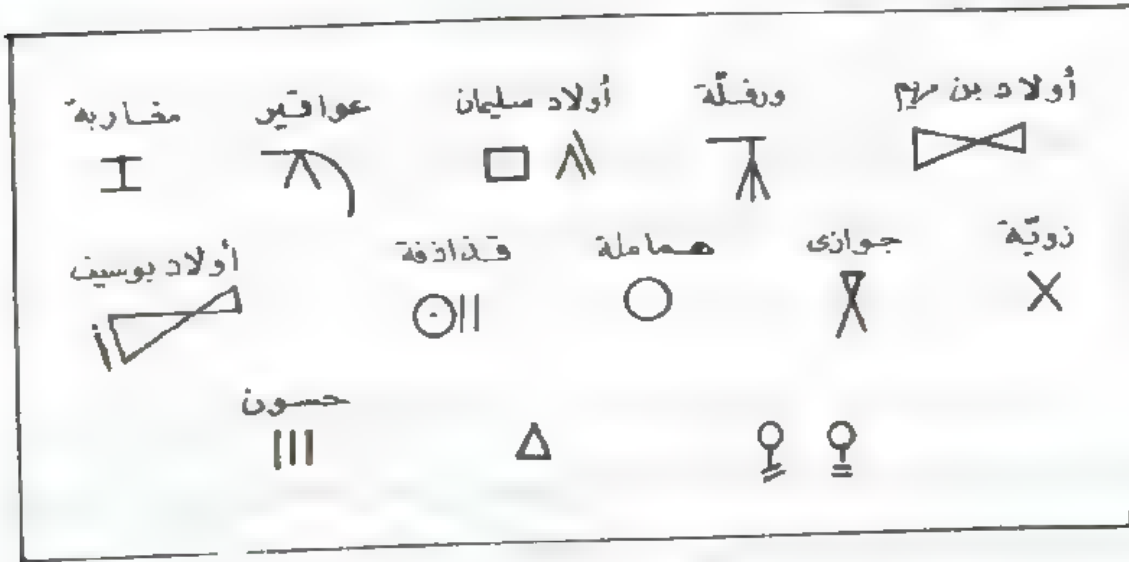 أولاد بن مريم ورفلّة أولاد سليمان عواقير مغاربة
زويّة جوازى هماملة قذاذفة أولاد بوسيف
حسون